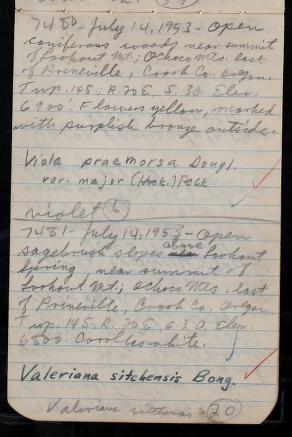 7480- July 14, 1953- Open
coniferous woods near summit
of Lookout Mt; Ochoco Mts. east
of Prineville, Crook Co. Oregon,
Twp. 14S, R. 20E, S. 30. Elev.
6900'. Flowers yellow, marked
with purplish bronze outside.
Viola praemorsa Dougl.
var. major (Hook.) Peck
violet 6
7481- July 14, 1953- Open
sagebrush slopes above Lookout
Spring, near summit of
Lookout Mt; Ochoco Mts. east
of Prineville, Crook Co. Oregon.
Twp. 14S. R. 20E, S. 30. Elev.
6500'. Corollas white.
Valeriana sitchensis Bong.
Valeriana sitchensis 20